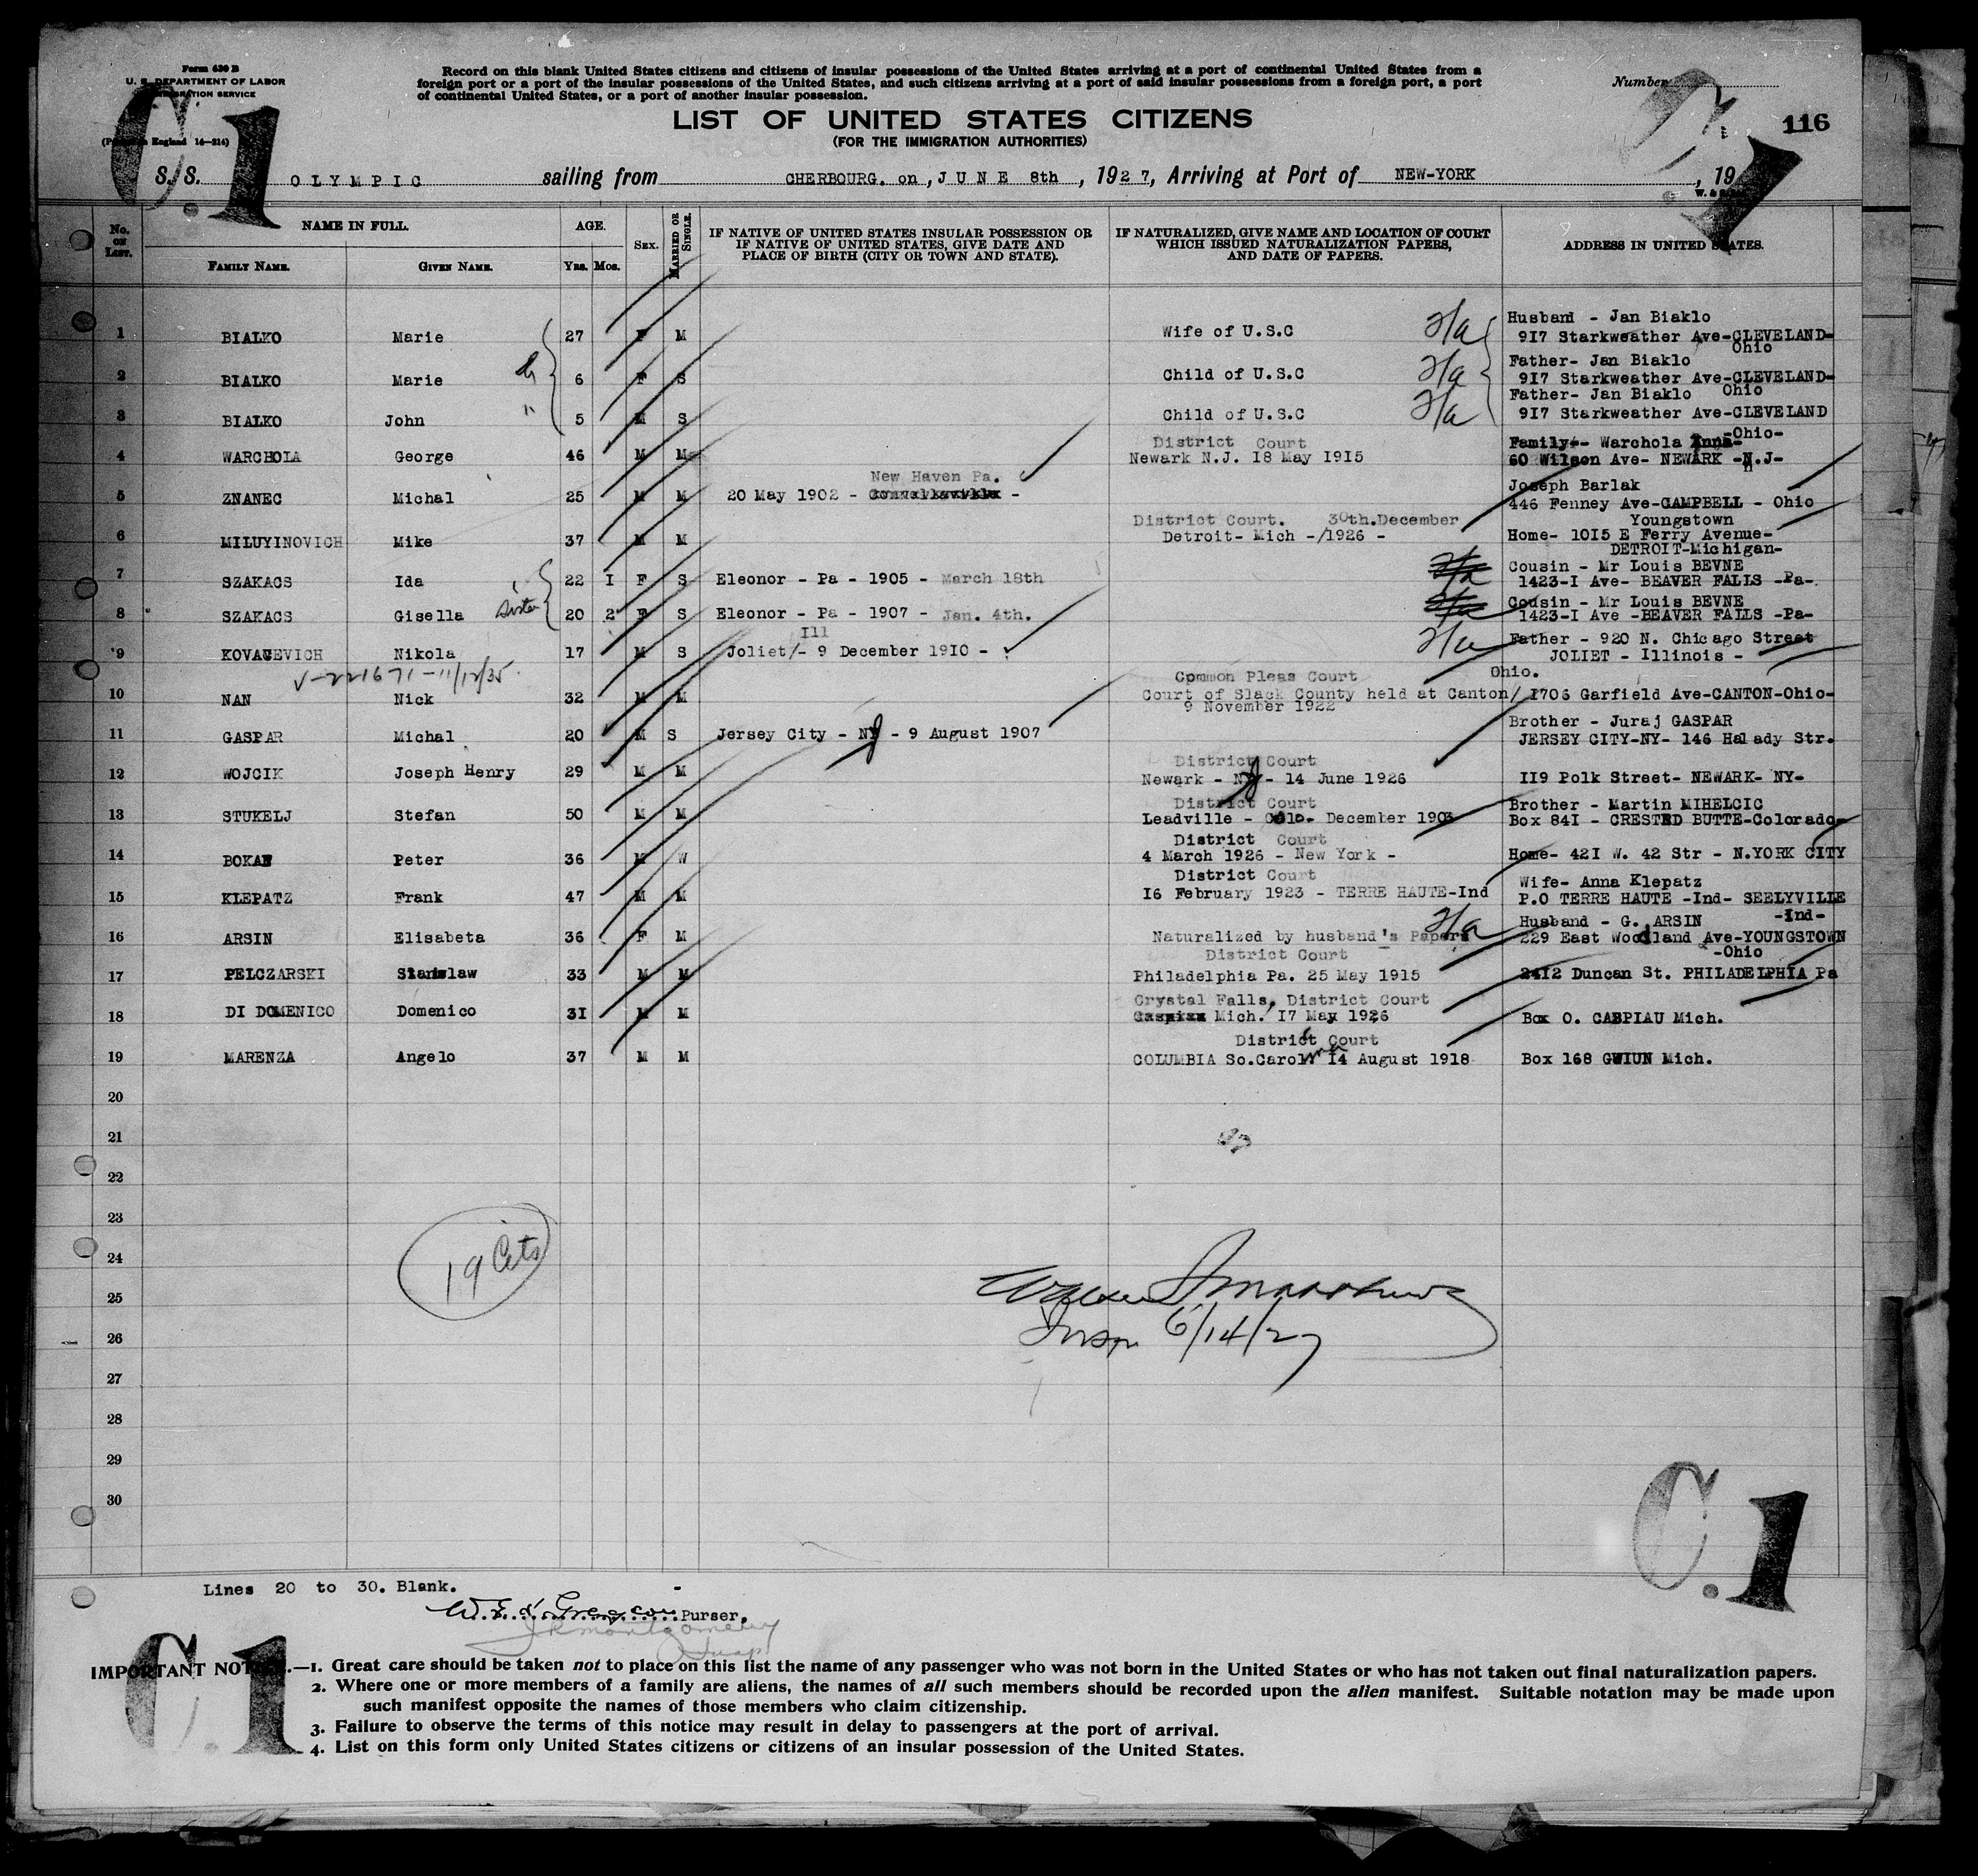 Form 630 B
U. S. DEPARTMENT OF LABOR
IMMIGRATION SERVICE
England 14-214)
Record on this blank United States citizens and citizens of insular possessions of the United States arriving at a port of continental United States from a
foreign port or a port of the insular possessions of the United States, and such citizens arriving at a port of said insular possessions from a foreign port, a port
of continental United States, or a port of another insular possession.
Number
116
C.1
LIST OF UNITED STATES CITIZENS
(FOR THE IMMIGRATION AUTHORITIES)
S.S. OLYMPIC sailing from CHERBOURG. on, JUNE 8th, 1927, Arriving at Port of NEW-YORK, 19
No. ON LIST. NAME IN FULL. AGE. SEX. MARRIED OR SINGLE. IF NATIVE OF UNITED STATES INSULAR POSSESSION OR IF NATIVE OF UNITED STATES, GIVE DATE AND PLACE OF BIRTH (CITY OR TOWN AND STATE). IF NATURALIZED, GIVE NAME AND LOCATION OF COURT WHICH ISSUED NATURALIZATION PAPERS, AND DATE OF PAPERS. ADDRESS IN UNITED STATES.
FAMILY NAME. GIVEN NAME. YRS. MOS.
1 BIALKO Marie 27 F M Wife of U.S.C Husband - Jan Biaklo
917 Starkweather Ave-CLEVELAND-
Ohio
2 BIALKO Marie 6 F S Child of U.S.C Father- Jan Biaklo
917 Starkweather Ave-CLEVELAND-
Ohio
3 BIALKO John 5 M S Child of U.S.C Father- Jan Biaklo
917 Starkweather Ave-CLEVELAND
-Ohio-
4 WARCHOLA George 46 M M District Court
Newark N.J. 18 May 1915 Family- Warchola Anna-
60 Wilson Ave- NEWARK -N.J-
5 ZNANEC Michal 25 M M New Haven Pa.
20 May 1902 - Joseph Barlak
446 Fenney Ave-CAMPBELL - Ohio
Youngstown
6 MILUYINOVICH Mike 37 M M District Court. 30th.December
Detroit- Mich -/1926 - Home- 1015 E Ferry Avenue-
DETROIT-Michigan-
7 SZAKACS Ida 22 1 F S Eleonor - Pa - 1905 - March 18th Cousin - Mr Louis BEVNE
1423-I Ave- BEAVER FALLS -Pa-
8 SZAKACS Gisella Sister 20 2 F S Eleonor - Pa - 1907 - Jan. 4th. Cousin - Mr Louis BEVNE
1423-I Ave -BEAVER FALLS -Pa-
9 KOVACEVICH Nikola 17 M S Ill
Joliet/- 9 December 1910 - Father - 920 N. Chicago Street
JOLIET - Illinois -
V-221671-11/12/35.
10 NAN Nick 32 M M Common Pleas Court Ohio.
Court of Slack County held at Canton/ 1706 Garfield Ave-CANTON-Ohio-
9 November 1922
11 GASPAR Michal 20 M S Jersey City - NJ - 9 August 1907 Brother - Juraj GASPAR
JERSEY CITY-NY- 146 Halady Str.
12 WOJCIK Joseph Henry 29 M M District Court
Newark - NJ - 14 June 1926 119 Polk Street- NEWARK- NY-
13 STUKELJ Stefan 50 M M District Court
Leadville - Colo- December 1903 Brother - Martin MIHELCIC
Box 841 - CRESTED BUTTE-Colorado-
14 BOKAN Peter 36 M W District Court
4 March 1926 - New York - Home- 421 W. 42 Str - N.YORK CITY
15 KLEPATZ Frank 47 M M District Court
16 February 1923 - TERRE HAUTE-Ind Wife- Anna Klepatz
P.O TERRE HAUTE -Ind- SEELYVILLE
-Ind-
16 ARSIN Elisabeta 36 F M Naturalized by husband's Papers Husband - G. ARSIN
229 East Woodland Ave-YOUNGSTOWN
-Ohio
17 PELCZARSKI Stanislaw 33 M M District Court
Philadelphia Pa. 25 May 1915 2412 Duncan St. PHILADELPHIA Pa
18 DI DOMENICO Domenico 31 M M Crystal Falls, District Court
Mich. 17 May 1926 Box O. CASPIAU Mich.
19 MARENZA Angelo 37 M M District Court
COLUMBIA So.Carolina 14 August 1918 Box 168 GWIUN Mich.
20
21
22
23
24
25
26
27
28
29
30
19 Cits
Insp 6/14/27
C.1
Lines 20 to 30. Blank.
Purser.
JR Montgomery
C.1
IMPORTANT NOTICE.—1. Great care should be taken not to place on this list the name of any passenger who was not born in the United States or who has not taken out final naturalization papers.
2. Where one or more members of a family are aliens, the names of all such members should be recorded upon the alien manifest. Suitable notation may be made upon
such manifest opposite the names of those members who claim citizenship.
3. Failure to observe the terms of this notice may result in delay to passengers at the port of arrival.
4. List on this form only United States citizens or citizens of an insular possession of the United States.